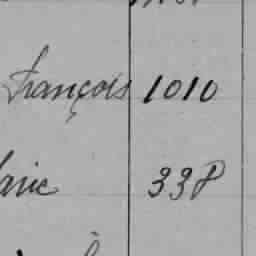 François 1010
arie 338